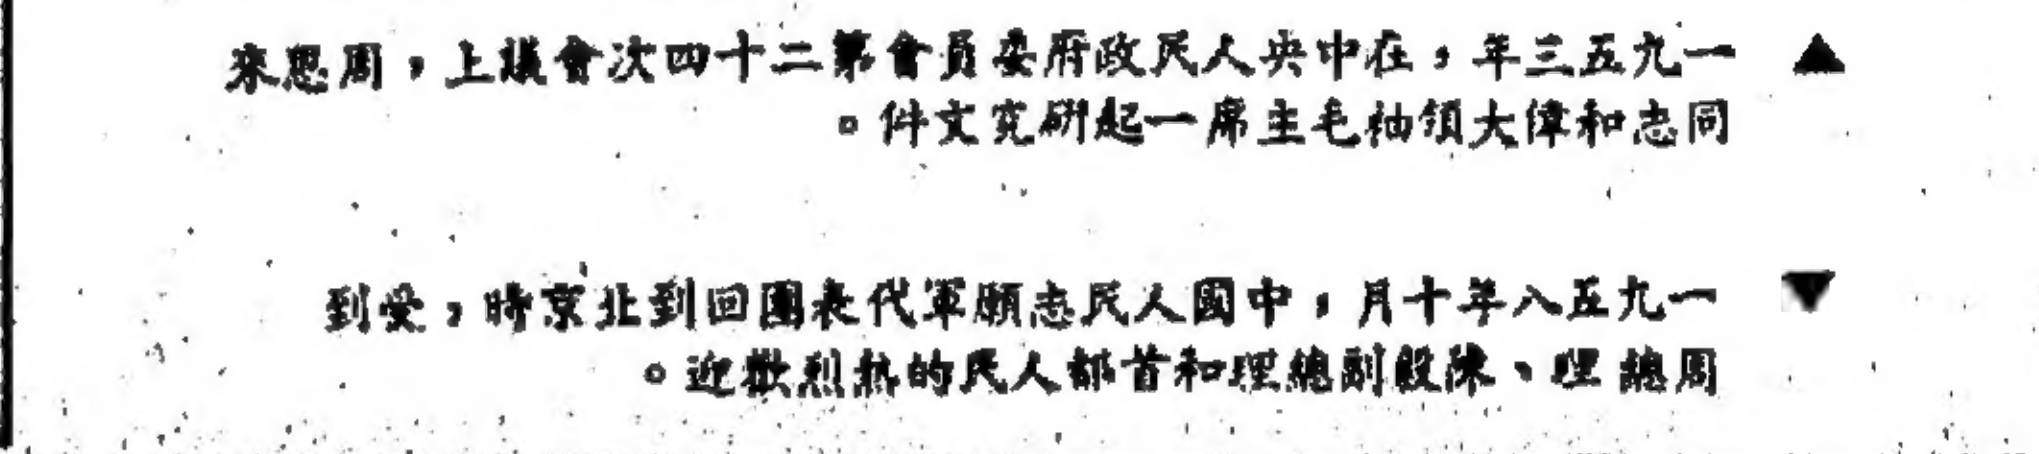 ▲ 一九五三年，在中央人民政府委員會第二十四次會議上，周恩來
同志和偉大領袖毛主席一起研究文件。
▼ 一九五八年十月，中國人民志願軍代表團回到北京時，受到
周總理、陳毅副總理和首都人民的熱烈歡迎。